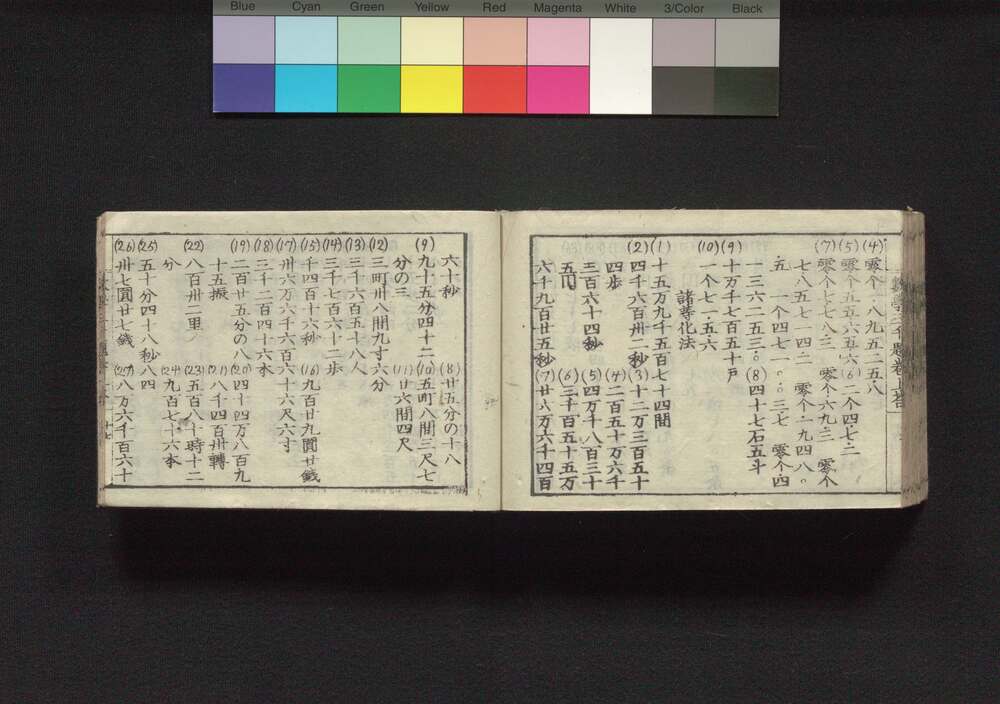 Blue Cyan Green Yellow Red Magenta White 3/Color Black
(4)零个・八九五二五八
(5)零个五五六五六(6)二个四七二
(7)零个七七八三 零个六九三 零个
七八五七一四二 零个一九四八。
五 一个四七一。。三七 零个・四
一三六二五三。(8)四十七石五斗
(9)十万千七百五十戸
(10)一个七一五六
諸等化法
(1)十五万九千五百七十四間
(2)四千六百卅二秒(3)十二万三百五十
四歩 (4)二百五十万六千
三百六十四秒 (5)四万千八百三十
五門 (6)三千百五十五万
六千九百廿五秒(7)廿六万六千四百
六十秒 (8)廿五分の十八
(9)九十五分四十二(10)五町八間三尺七
分の三 (11)廿六間四尺
(12)三町卅八間九寸六分
(13)三千六百五十八人
(14)三千七百六十二歩
(15)千四百十六秒 (16)九百廿九圓廿錢
(17)卅六万六千六百六十六尺六寸
(18)三千二百四十六本
(19)二百廿五分の八(20)四十四万八百九
十五振 (21)八千四百卅轉
(22)八百卅二里 (23)五百八十時十二
分 (24)九百七十六本
(25)五十分四十八秒八四
(26)卅七圓廿七錢 (27)八万六千百六十